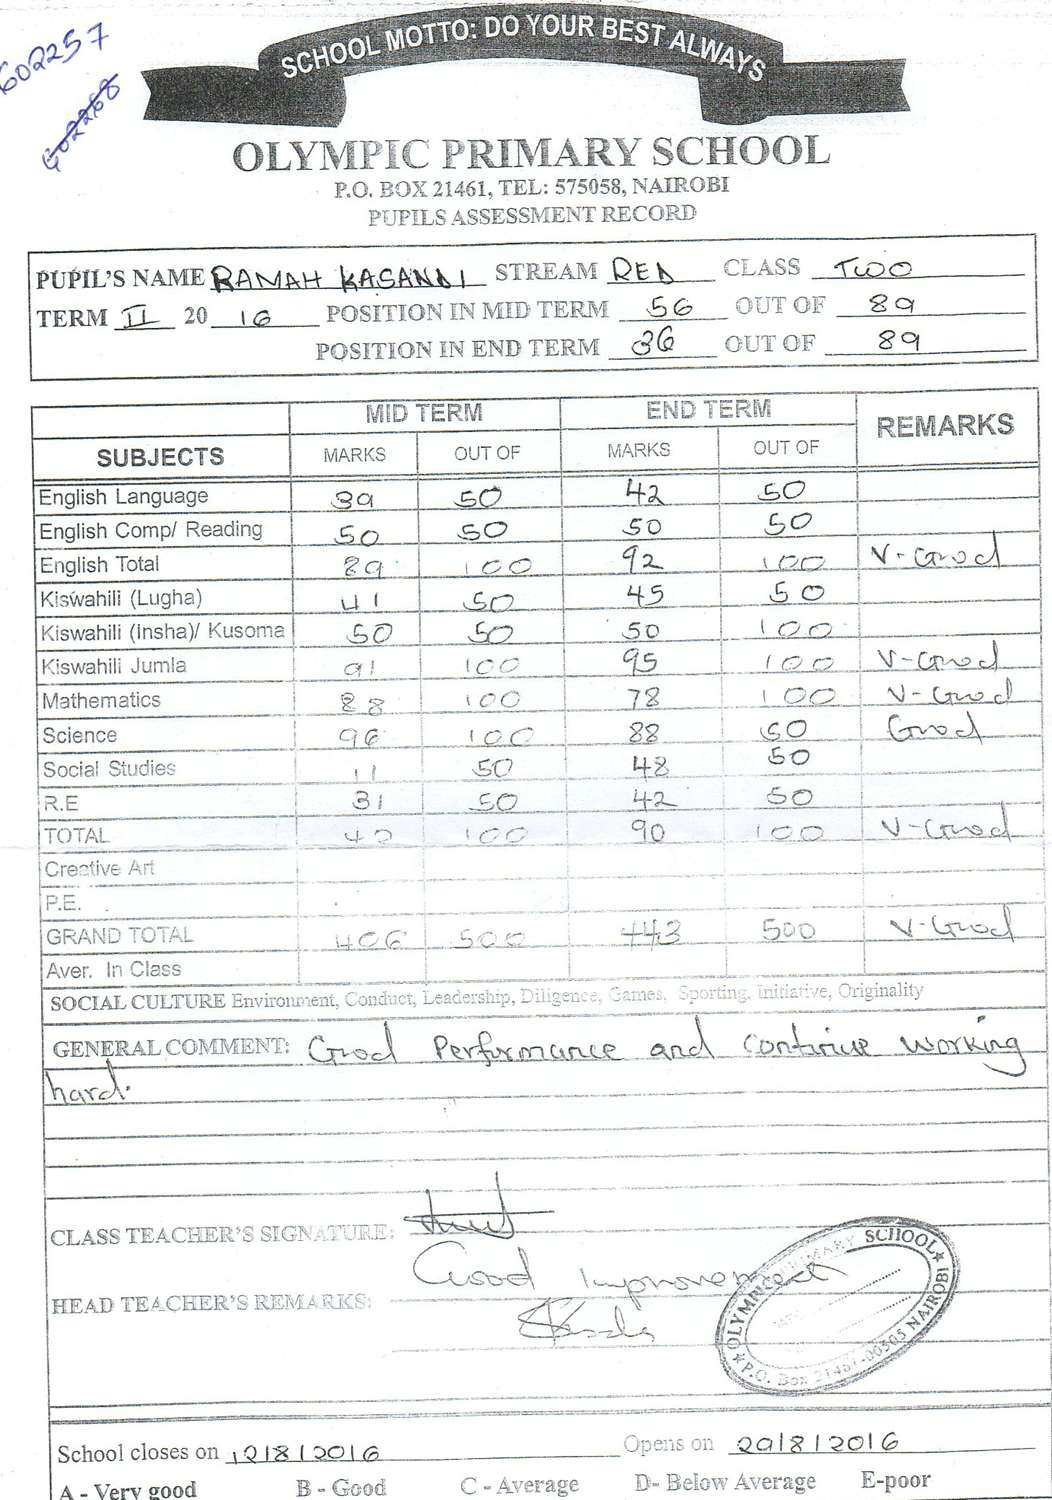 602257
602268
SCHOOL MOTTO: DO YOUR BEST ALWAYS
OLYMPIC PRIMARY SCHOOL
P.O. BOX 21461, TEL: 575058, NAIROBI
PUPILS ASSESSMENT RECORD
PUPIL'S NAME RAMAH KASANDI STREAM RED CLASS TWO
TERM II 20 16 POSITION IN MID TERM 56 OUT OF 89
POSITION IN END TERM 36 OUT OF 89
MID TERM END TERM REMARKS
SUBJECTS MARKS OUT OF MARKS OUT OF
English Language 39 50 42 50
English Comp/ Reading 50 50 50 50
English Total 89 100 92 100 V-Good
Kiswahili (Lugha) 41 50 45 50
Kiswahili (Insha)/ Kusoma 50 50 50 100
Kiswahili Jumla 91 100 95 100 V-Good
Mathematics 88 100 78 100 V-Good
Science 96 100 88 50 Good
Social Studies 11 50 48 50
R.E 31 50 42 50
TOTAL 42 100 90 100 V-Good
Creative Art
P.E.
GRAND TOTAL 406 500 443 500 V-Good
Aver. In Class
SOCIAL CULTURE Environment, Conduct, Leadership, Diligence, Games, Sporting, initiative, Originality
GENERAL COMMENT: Good Performance and continue working
hard.
CLASS TEACHER'S SIGNATURE:
Good Improvement
HEAD TEACHER'S REMARKS:
OLYMPIC PRIMARY SCHOOL
P.O. Box 21461-00505 NAIROBI
School closes on 12/8/2016 Opens on 29/8/2016
A - Very good B - Good C - Average D- Below Average E-poor